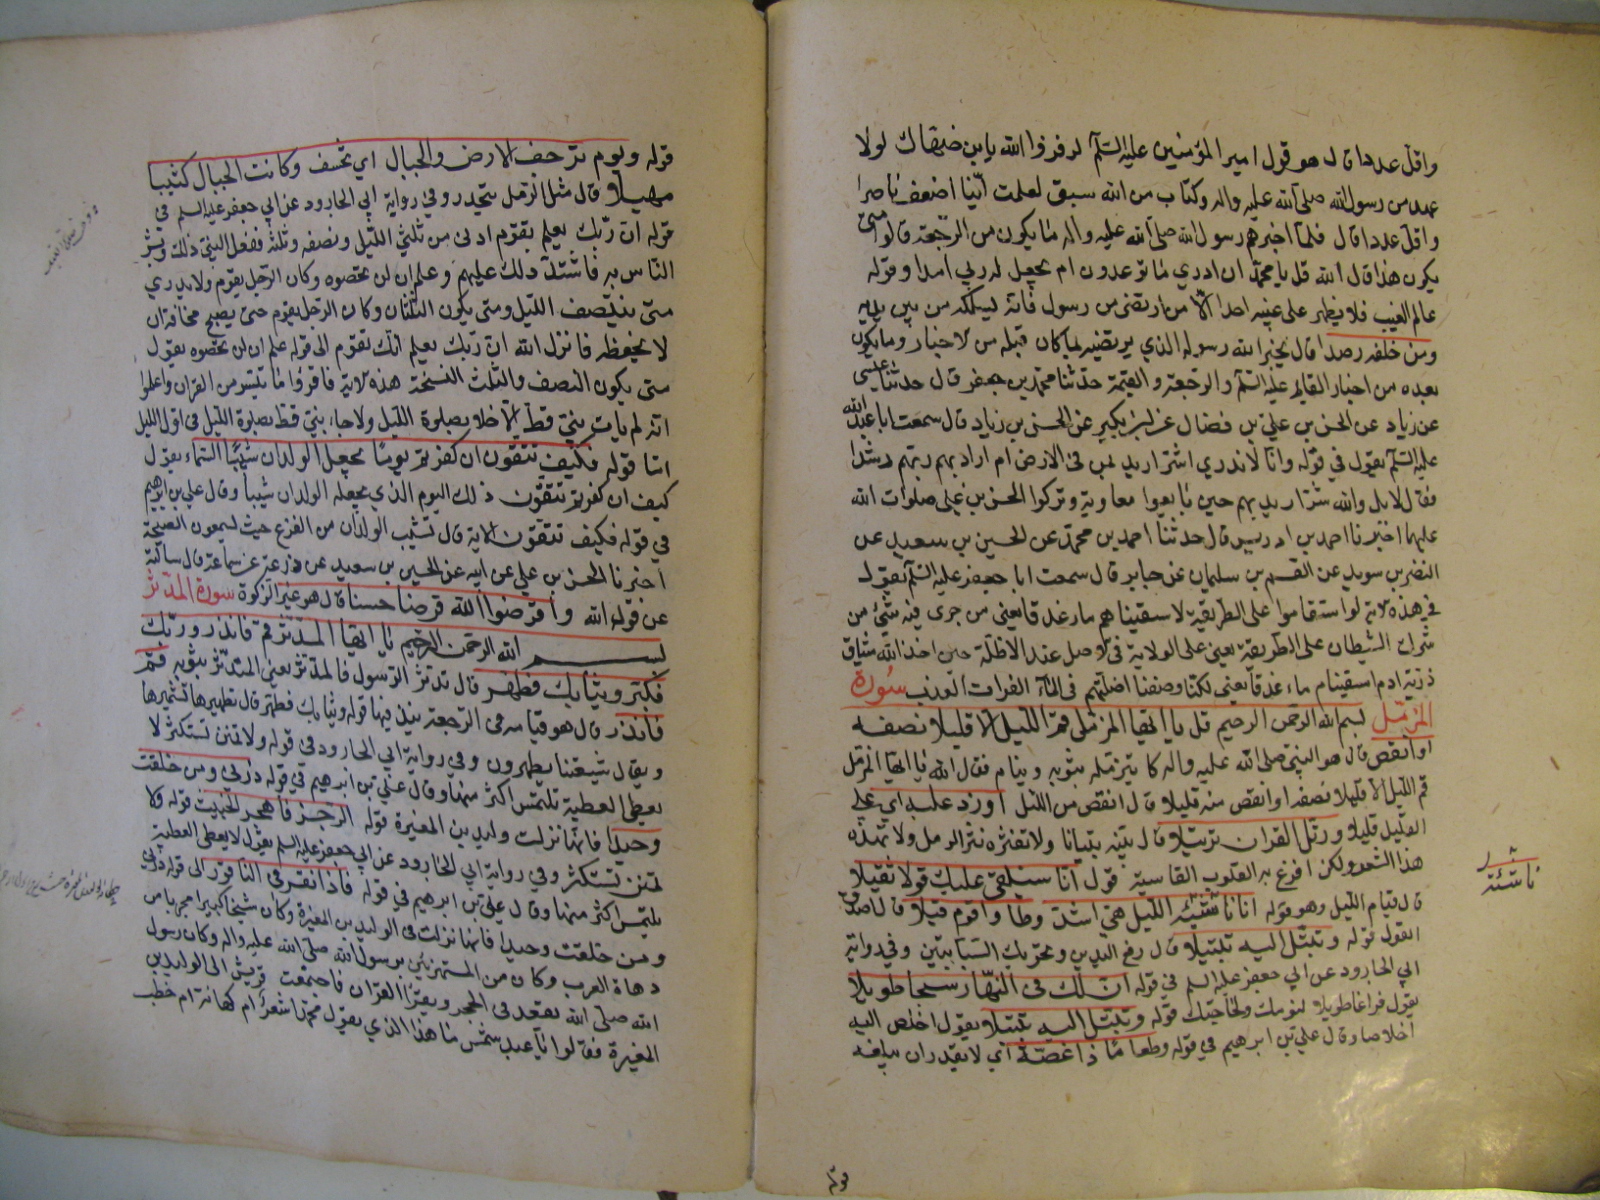 واقل عددا قال هو قول امير المؤمنين عليه السلم لزفر والله يابن صهاك لولا
عهد من رسول الله صلى الله عليه واله وكتاب من الله سبق لعلمت اينا اضعف ناصرا
واقل عددا قال فلما اخبرهم رسول الله صلى الله عليه واله ما يكون من الرجعة قالوا متى
يكون هذا قال الله قل يا محمد ان ادري ما توعدون ام يجعل له ربي امدا وقوله
عالم الغيب فلا يظهر على غيبه احدا الا من ارتضى من رسول فانه يسلك من بين يديه
ومن خلفه رصدا قال يخبر الله رسوله الذي يرتضيه بما كان قبله من الاخبار وما يكون
بعده من اخبار القايم عليه السلم والرجعة والقيمة حدثنا محمد بن جعفر قال حدثنا
عن زياد عن الحسن بن علي بن فضال عن ابن بكير عن الحسن بن زياد قال سمعت ابا عبد الله
عليه السلم يقول في قوله وانا لا ندري اشر اريد بمن في الارض ام اراد بهم ربهم رشدا
فقال لا بل والله شر اريد بهم حين بايعوا معاوية وتركوا الحسن بن علي صلوات الله
عليهما اخبرنا احمد بن ادريس قال حدثنا احمد بن محمد عن الحسين بن سعيد عن
النضر بن سويد عن القسم بن سليمان عن جابر قال سمعت ابا جعفر عليه السلم يقول
في هذه الاية لو استقاموا على الطريقة لاسقيناهم ماء غدقا يعني من جرى فيه شيء من
الشيطان على الطريقة يعني على الولاية في الاصل عند الاظلة حين اخذ الله ميثاق
ذرية ادم اسقيناهم ماء غدقا يعني لكنا وضعنا اظلتهم في الماء الفرات العذب سورة
المزمل بسم الله الرحمن الرحيم يا ايها المزمل قم الليل الا قليلا نصفه
او انقص قال هو النبي صلى الله عليه واله كان يتزمل بثوبه وينام فقال الله يا ايها المزمل
قم الليل الا قليلا نصفه او انقص منه قليلا قال انقص من القليل او زد عليه اي على
القليل قليلا ورتل القران ترتيلا قال بينه بيانا ولا تنثره نثر الرمل ولا تهذه
هذا الشعر ولكن افزع به القلوب القاسية قوله انا سنلقي عليك قولا ثقيلا
قال قيام الليل وهو قوله ان ناشئة الليل هي اشد وطأ واقوم قيلا قال اصدق
القول قوله وتبتل اليه تبتيلا قال رفع اليدين وتحريك السبابتين وفي رواية
ابي الجارود عن ابي جعفر عليه السلم في قوله ان لك في النهار سبحا طويلا
يقول فراغا طويلا لنومك ولحاجتك قوله وتبتل اليه تبتيلا يقول اخلص اليه
اخلاصا وقال علي بن ابرهيم في قوله وطعاما ذا غصة اي لا يقدر ان يبلغه
ناشئة
قوله
قوله ويوم ترجف الارض والجبال اي تخسف وكانت الجبال كثيبا
مهيلا قال مثل الرمل ينحدر وفي رواية ابي الجارود عن ابي جعفر عليه السلم في
قوله ان ربك يعلم يقوم ادنى من ثلثي الليل ونصفه وثلثه ففعل النبي ذلك وبشر
الناس به فاشتد ذلك عليهم وعلم ان لن تحصوه وكان الرجل يقوم ولا يدري
متى ينتصف الليل ومتى يكون الثلثان وكان الرجل يقوم حتى يصبح مخافة ان
لا يحفظه فانزل الله ان ربك يعلم انك تقوم الى قوله علم ان لن تحصوه يقول
متى يكون النصف والثلث نسخت هذه الاية فاقرؤا ما تيسر من القران واعلموا
انه لم يات نبي قط الا خلا بصلوة الليل ولا جاء نبي قط بصلوة الليل في اول الليل
اما قوله فكيف تتقون ان كفرتم يوما يجعل الولدان شيبا السماء يقول
كيف ان كفرتم تتقون ذلك اليوم الذي يجعله الولدان شيبا وقال علي بن ابرهيم
في قوله فكيف تتقون الاية قال تشيب الولدان من الفزع حيث يسمعون الصيحة
اخبرنا الحسن بن علي عن ابيه عن الحسين بن سعيد عن زرعة عن سماعة قال سالته
عن قول الله واقرضوا الله قرضا حسنا قال هو غير الزكوة سورة المدثر
بسم الله الرحمن الرحيم يا ايها المدثر قم فانذر وربك
فكبر وثيابك فطهر قال تدثر الرسول فالمدثر يعني المتدثر بثوبه قم
فانذر قال هو قيامه في الرجعة ينذر فيها قوله وثيابك فطهر قال تطهيرها تشميرها
ويقال شيعتنا يطهرون وفي رواية ابي الجارود في قوله ولا تمنن تستكثر لا
يعطي العطية تلتمس اكثر منها وقال علي بن ابرهيم في قوله ذرني ومن خلقت
وحيدا فانها نزلت وليد بن المغيرة قوله الرجز فاهجر الخبيث قوله ولا
تمنن تستكثر وفي رواية ابي الجارود عن ابي جعفر عليه السلم يقول لا يعطي العطية
يلتمس اكثر منها وقال علي بن ابرهيم في قوله فاذا نقر في الناقور الى قوله ذرني
ومن خلقت وحيدا فانها نزلت في الوليد بن المغيرة وكان شيخا كبيرا مجربا من
دهاة العرب وكان من المستهزئين برسول الله صلى الله عليه واله وكان رسول
الله صلى الله يقعد في الحجر ويقرا القران فاجتمعت قريش الى الوليد بن
المغيرة فقالوا يا عبد شمس ما هذا الذي يقول محمد اشعر ام كهانة ام خطب